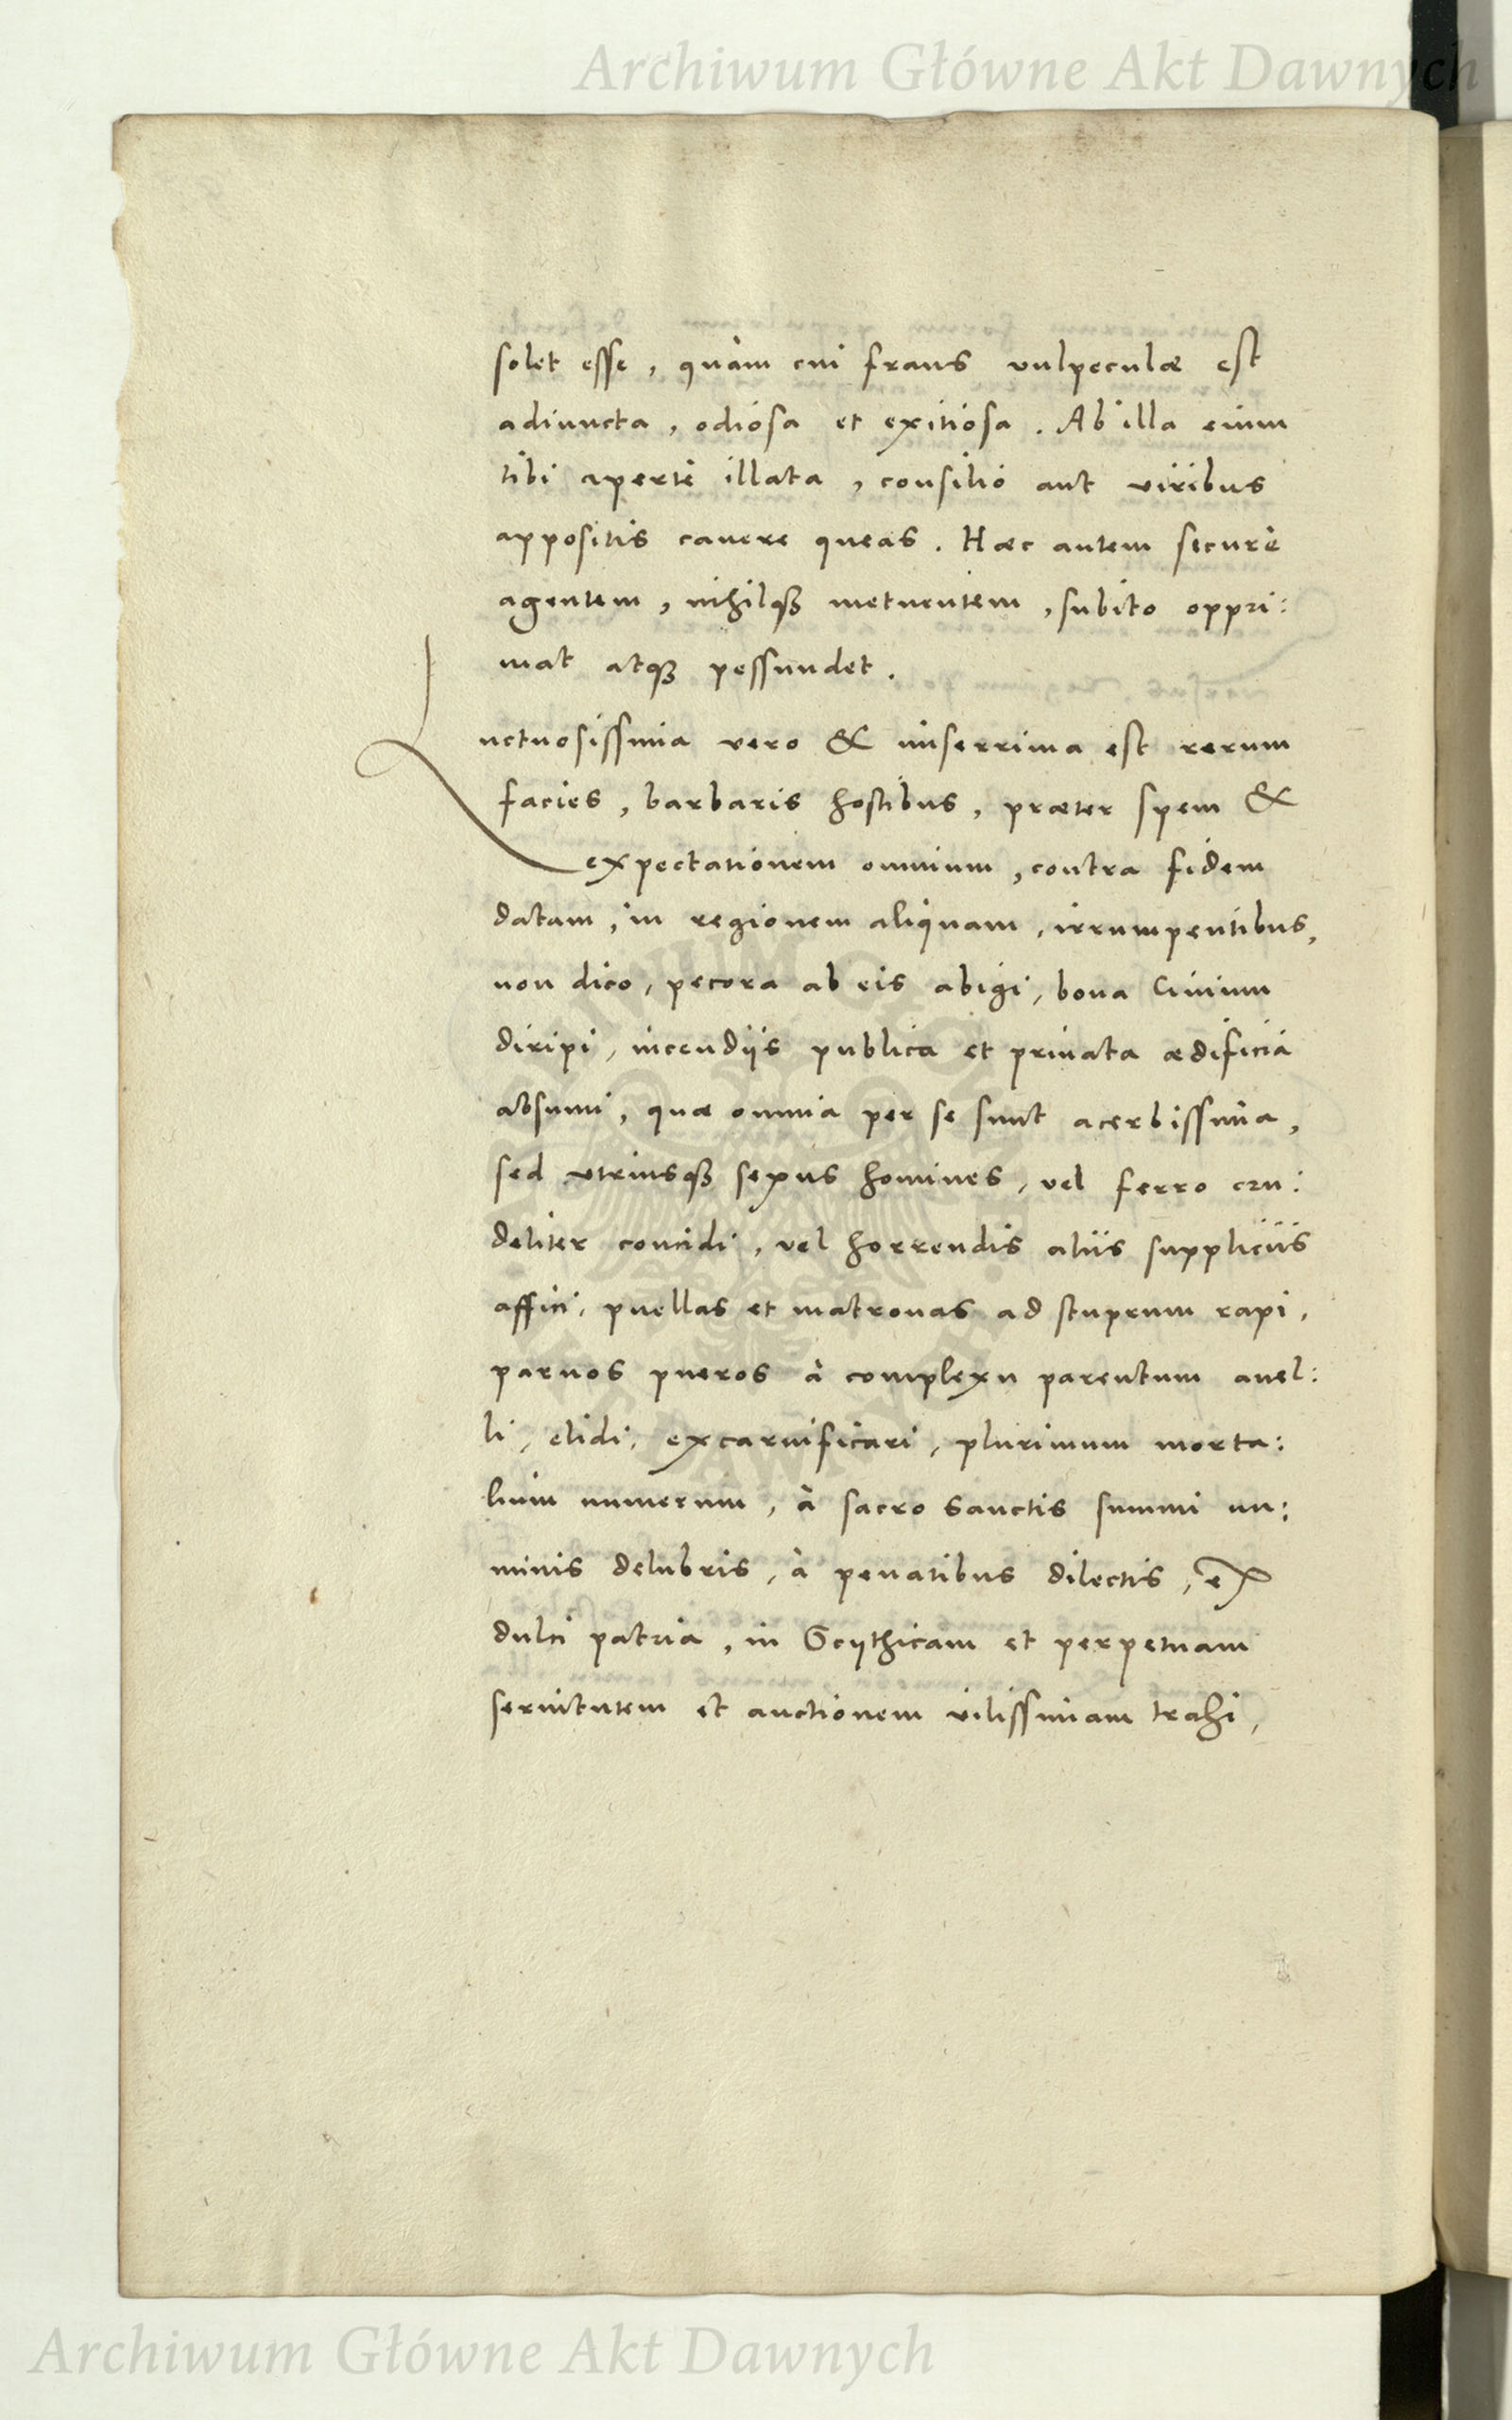 Archiwum Główne Akt Dawnych
solet esse, quàm cui fraus vulpeculæ est
adiuncta, odiosa et exitiosa. Ab illa enim
tibi apertè illata, consilio aut viribus
appositis cauere queas. Hæc autem securè
agentem, nihilqꝫ metuentem, subito oppri:
mat atqꝫ pessundet.
Luctuosissima vero & miserrima est rerum
facies, barbaris hostibus, præter spem &
expectationem omnium, contra fidem
datam, in regionem aliquam, irrumpentibus,
non dico, pecora ab eis abigi, bona Ciuium
diripi, incendijs publica et priuata ædificia
absumi, quæ omnia per se sunt acerbissima,
sed vtriusqꝫ sexus homines, vel ferro cru:
deliter concidi, vel horrendis aliis suppliciis
affici, puellas et matronas ad stuprum rapi,
paruos pueros à complexu parentum auel:
li, elidi, excarnificari, plurimum morta:
lium numerum, à sacro sanctis summi nu:
minis delubris, à penatibus dilectis, ex
dulci patria, in Scythicam et perpetuam
seruitutem et auctionem vilissimam trahi,
Archiwum Główne Akt Dawnych